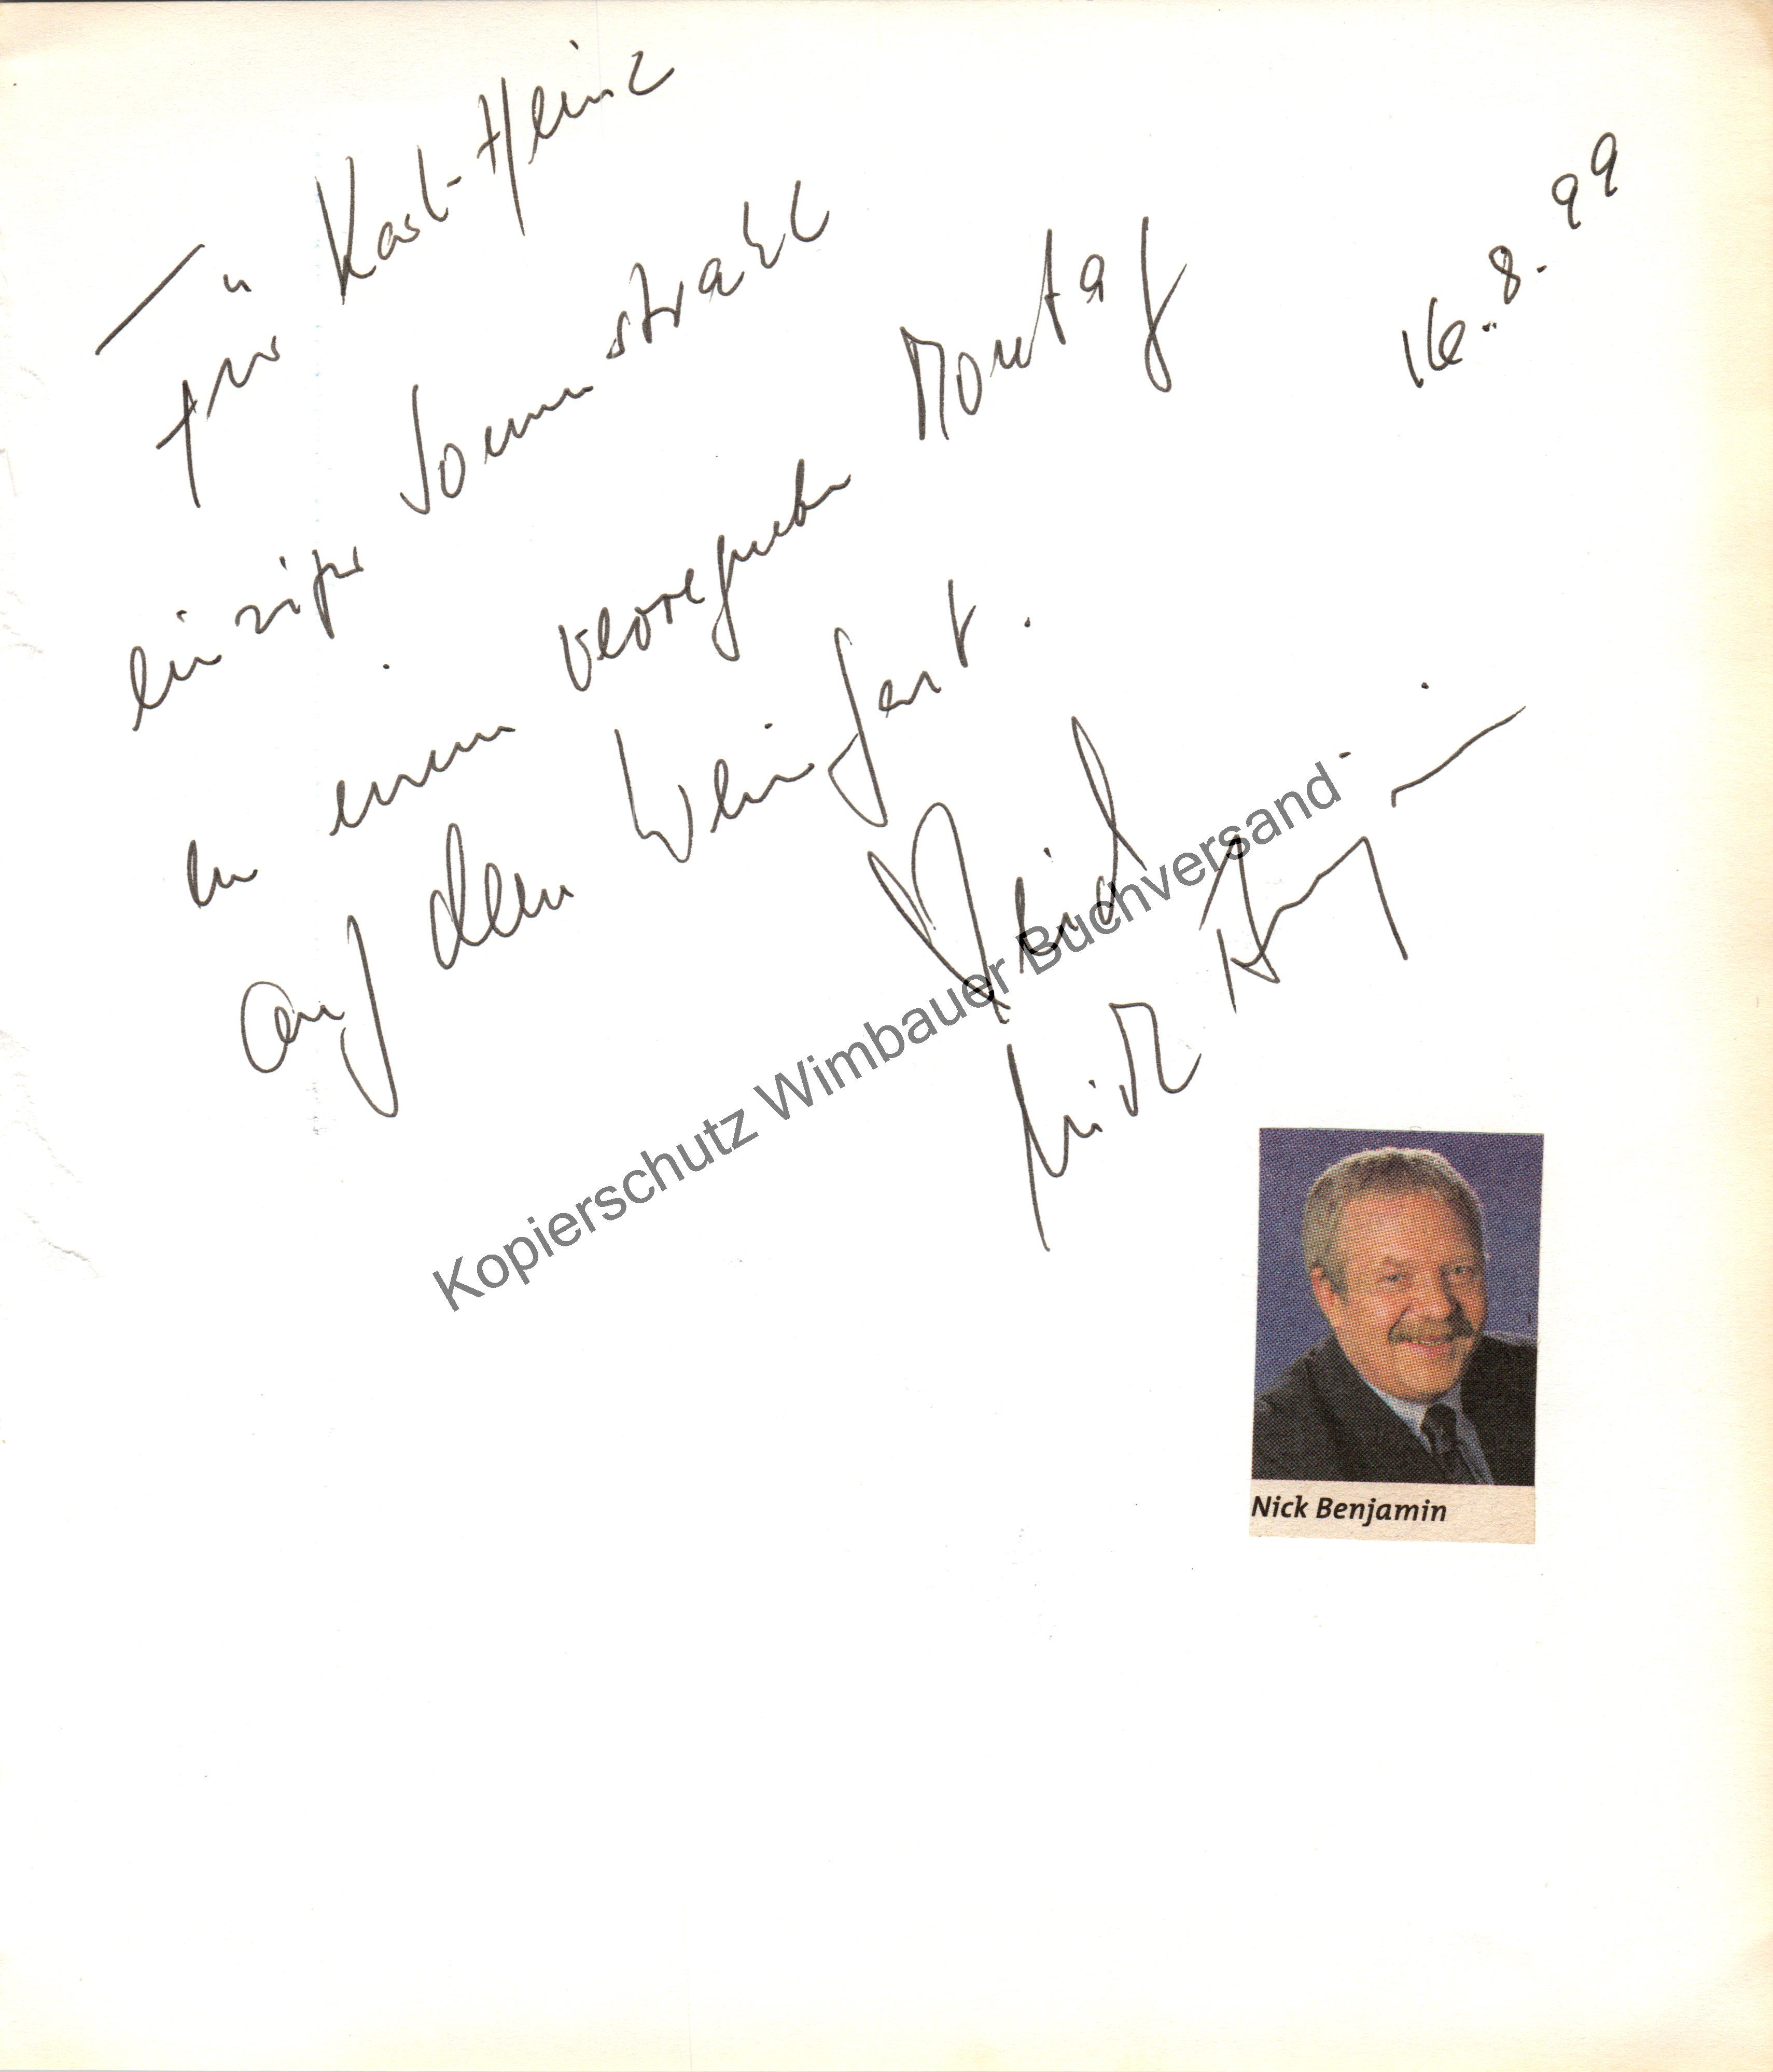 Für Karl-Heinz
einziger Sonnenstrahl
an einem verregneten Montag
16.8.99
auf dem Weinfest.
Nick
Kopierschutz Wimbauer Buchversand
Nick Benjamin